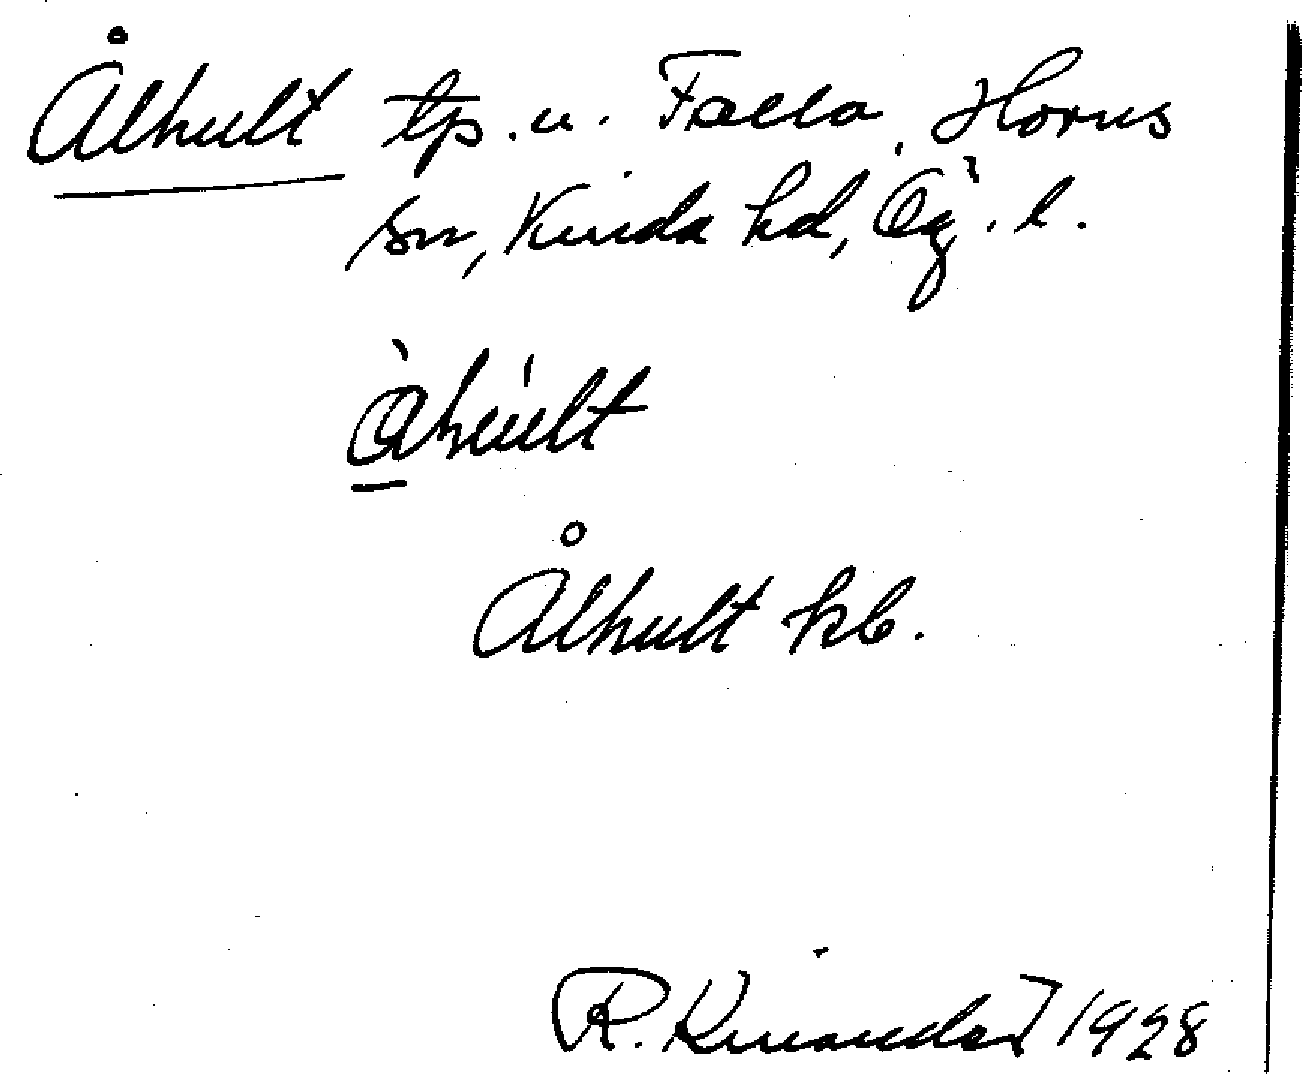 Ålhult tp. u. Falla, Horns
sn, Kinda hd, Ög. l.
Ålhult kb.
R. Kinander 1928